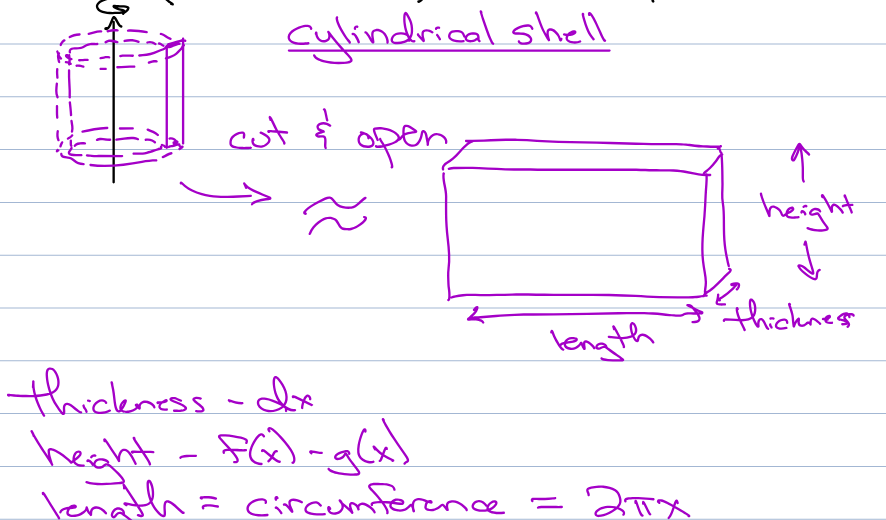 cylindrical shell
cut & open
≈
height
thickness
length
thickness - dx
height - f(x) - g(x)
length = circumference = 2πx